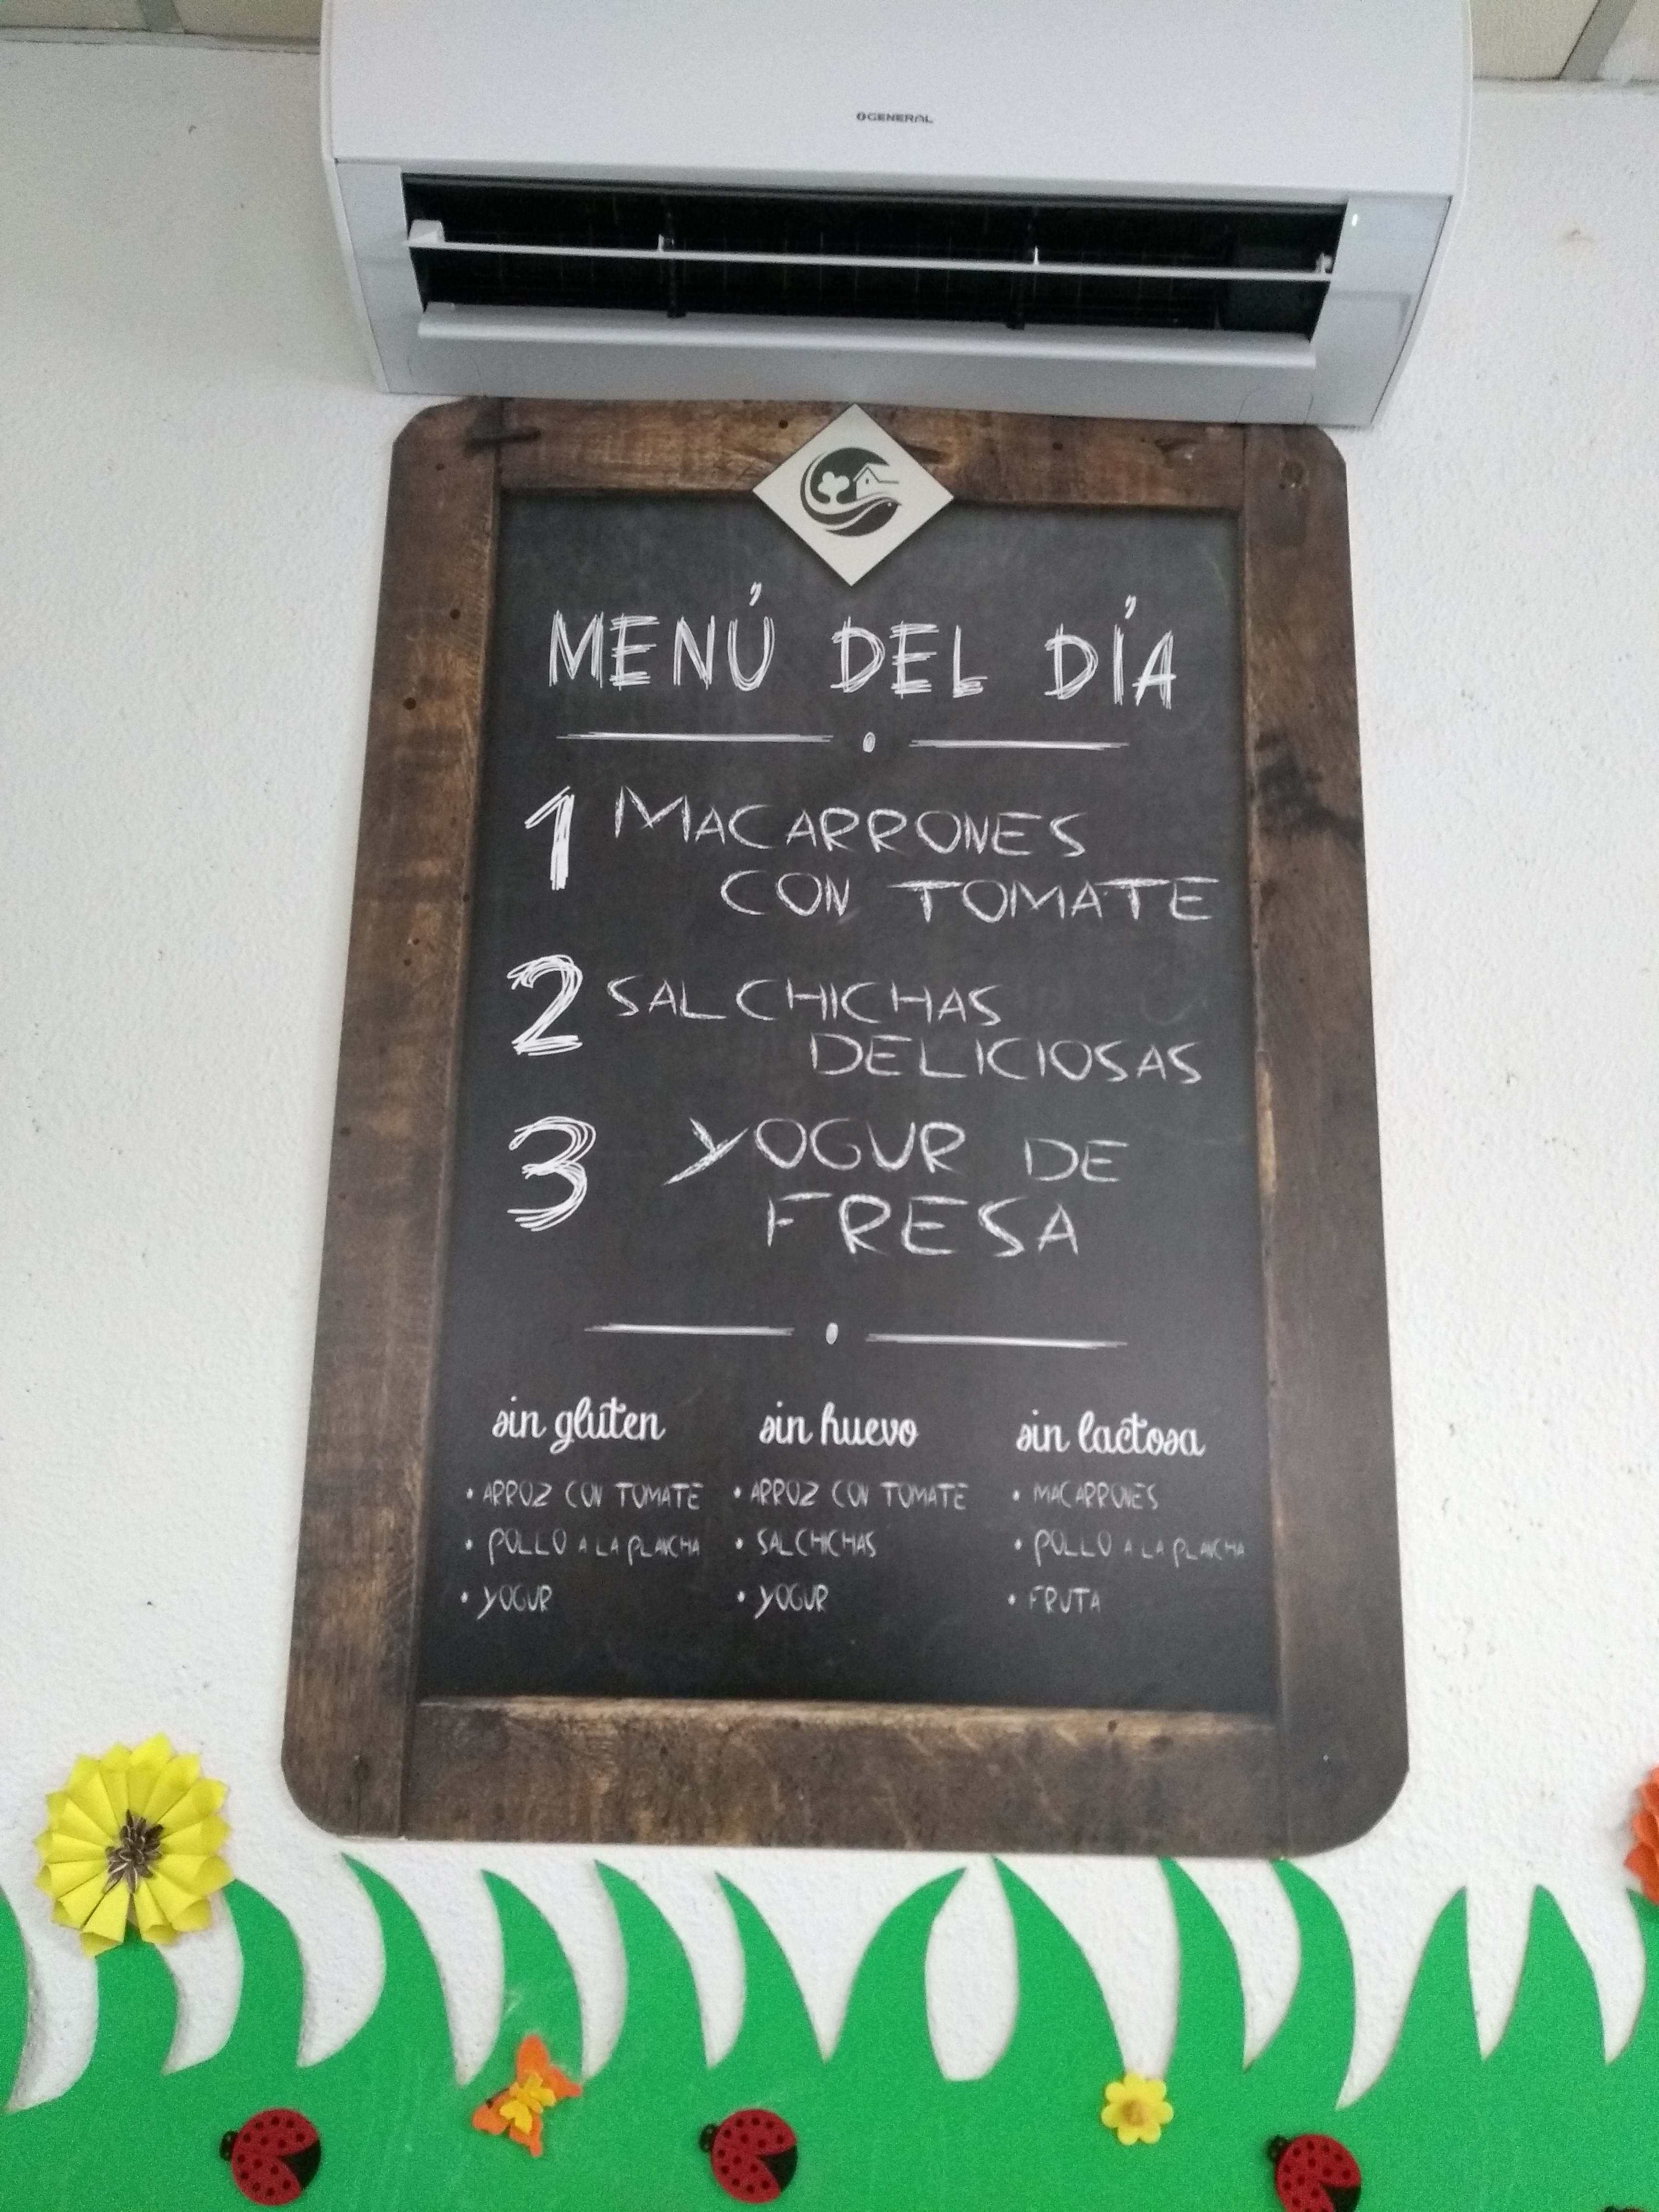 GENERAL
MENÚ DEL DÍA
1 MACARRONES
CON TOMATE
2 SALCHICHAS
DELICIOSAS
3 YOGUR DE
FRESA
sin gluten
• ARROZ CON TOMATE
• POLLO A LA PLANCHA
• YOGUR
sin huevo
• ARROZ CON TOMATE
• SALCHICHAS
• YOGUR
sin lactosa
• MACARRONES
• POLLO A LA PLANCHA
• FRUTA